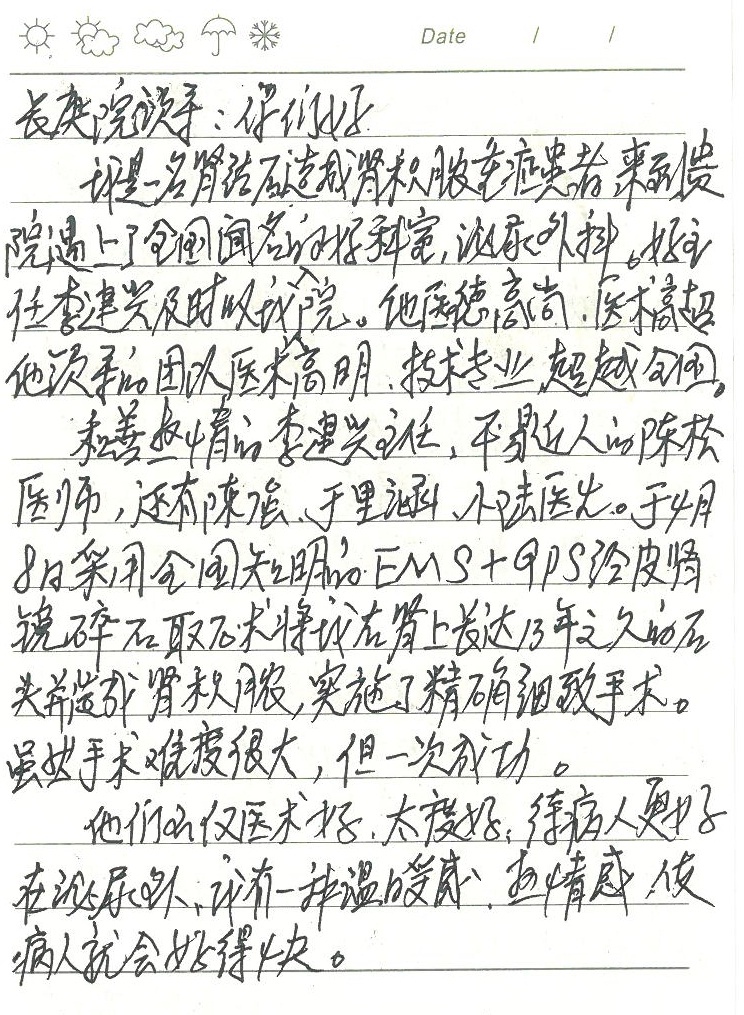 Date / /
长庚院领导：你们好
我是一名肾结石造成肾积脓重症患者，来到贵
院遇上了全国闻名的好科室，泌尿外科。好主
任李建兴及时收我入院。他医德高尚、医术高超
他领导的团队医术高明、技术专业，超越全国。
和善热情的李建兴主任，平易近人的陈松
医师，还有陈强、于里涵、小陆医生。于4月
8日采用全国知明的EMS+GPS经皮肾
镜碎石取石术将我右肾上长达13年之久的石
头并造成肾积脓，实施了精确细致手术。
虽然手术难度很大，但一次成功。
他们不仅医术好、太度好，待病人更好
在泌尿外、我有一种温暖感、热情感 使
病人就会好得快。